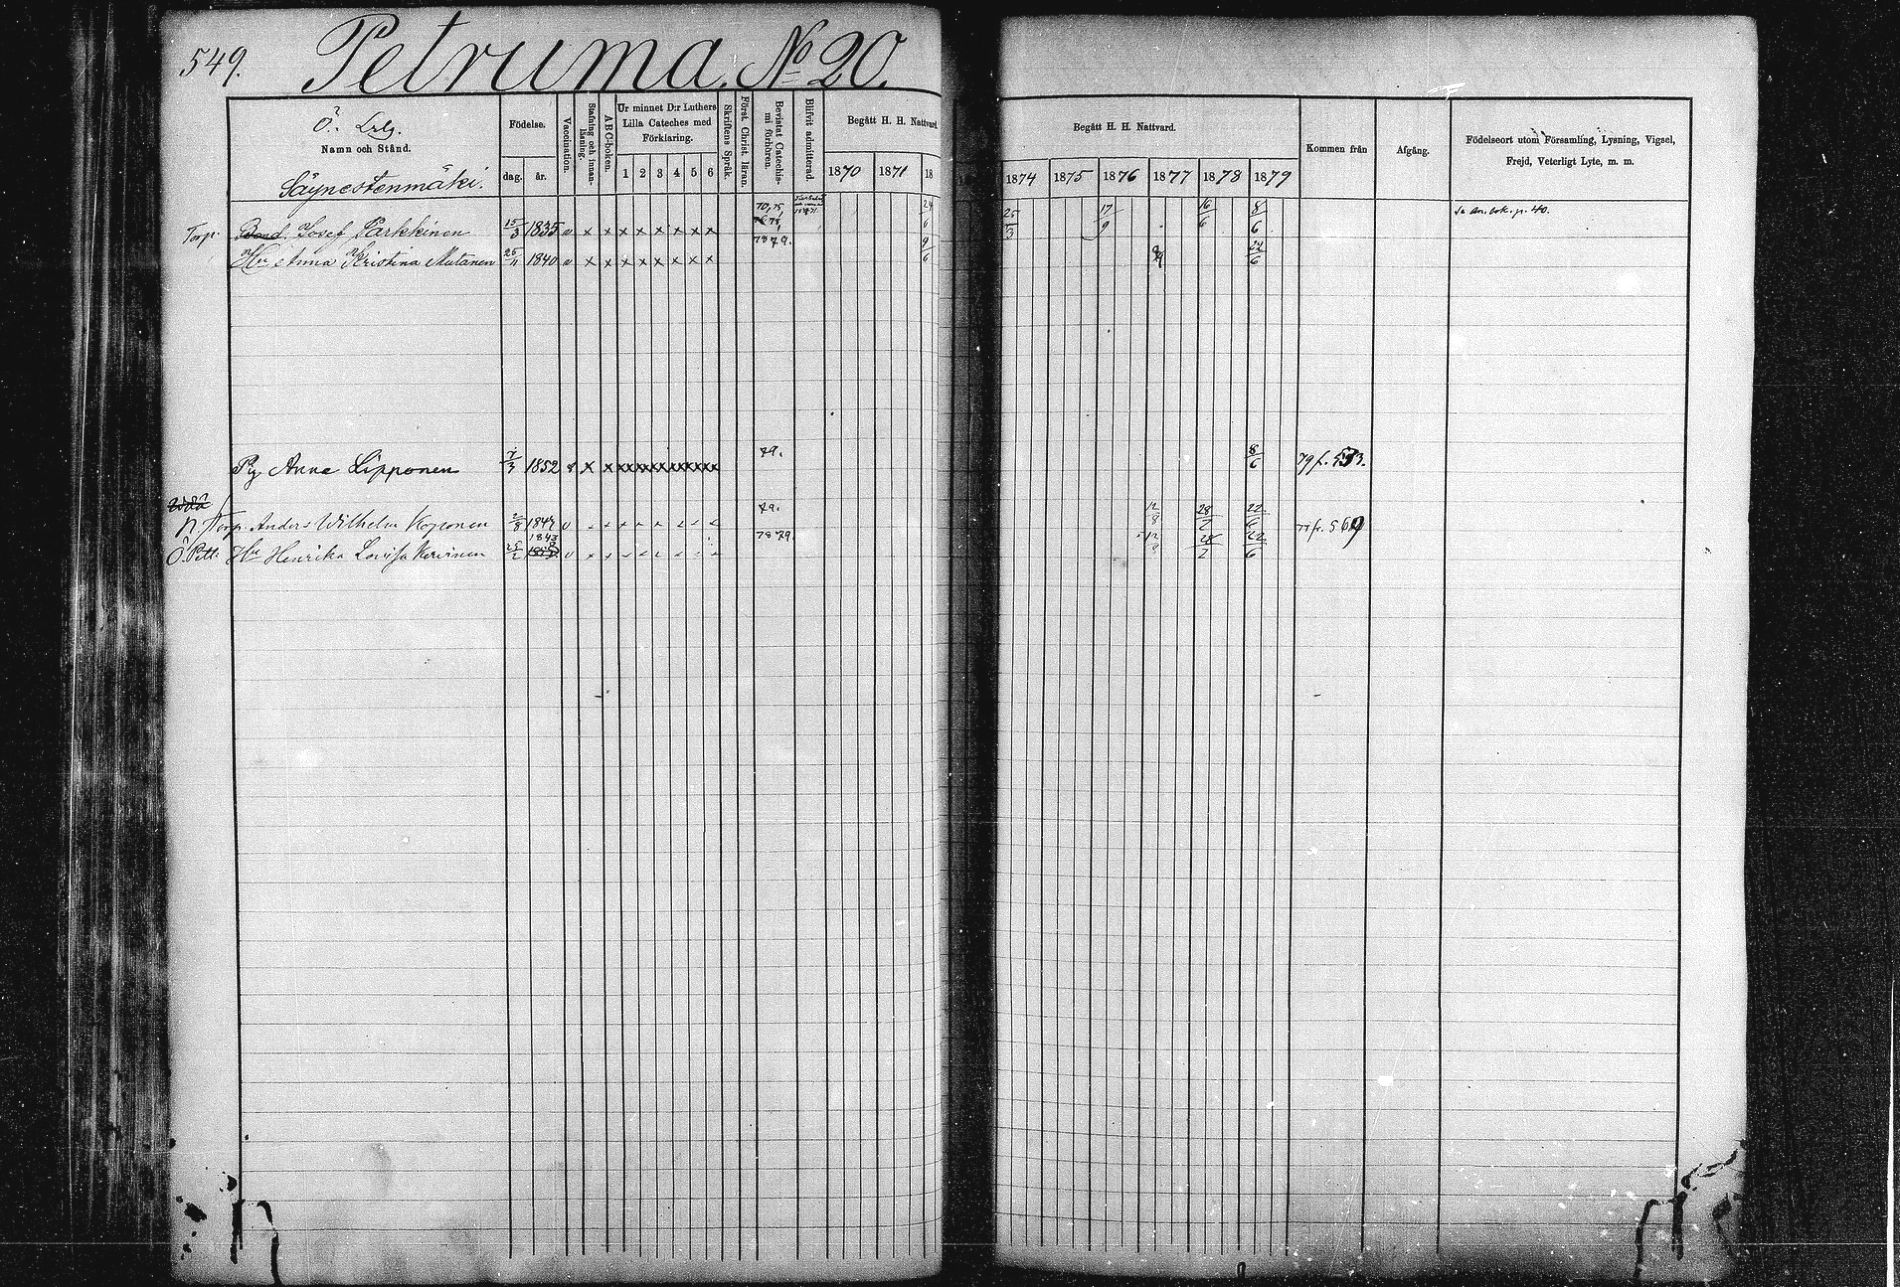 549. Petruma. No 20.
Ö. Lrlg.
Namn och Stånd.
Säynestenmäki.
Födelse.
dag. år.
Vaccination.
Stafning och innan-läsning.
ABC-boken.
Ur minnet D:r Luthers
Lilla Cateches med
Förklaring.
1 2 3 4 5 6
Skriftens Språk.
Först. Christ. läran.
Bevistat Catechis-mi förhören.
Blifvit admitterad
Begått H. H. Nattvard.
1870 1871 18
Begått H. H. Nattvard.
1874 1875 1876 1877 1878 1879
Kommen från
Afgång.
Födelseort utom Församling, Lysning, Vigsel,
Frejd, Veterligt Lyte, m. m.
Torp. Bond. Josef Parkkinen 15/3 1835 v x x x x x x x x 24/6 25/3 17/9 16/6 8/6 Se an. bok. p. 40.
Hu Anna Kristina Mutanen 25/11 1840 v x x x x x x x x 78 79. 9/6 22/6
Pig. Anna Lipponen 7/3 1852 v x x xx xx xx xx xx xx 79. 8/6 79 fr.
N. Torp. Anders Wilhelm Koponen 2/8 1847 v 79. 12/8 28/2 22/6 77 fr. 569
Ö. Pett. Hu Henrika Lovisa Kervinen 25/2 1843 v 78 79 12/8 28/2 22/6